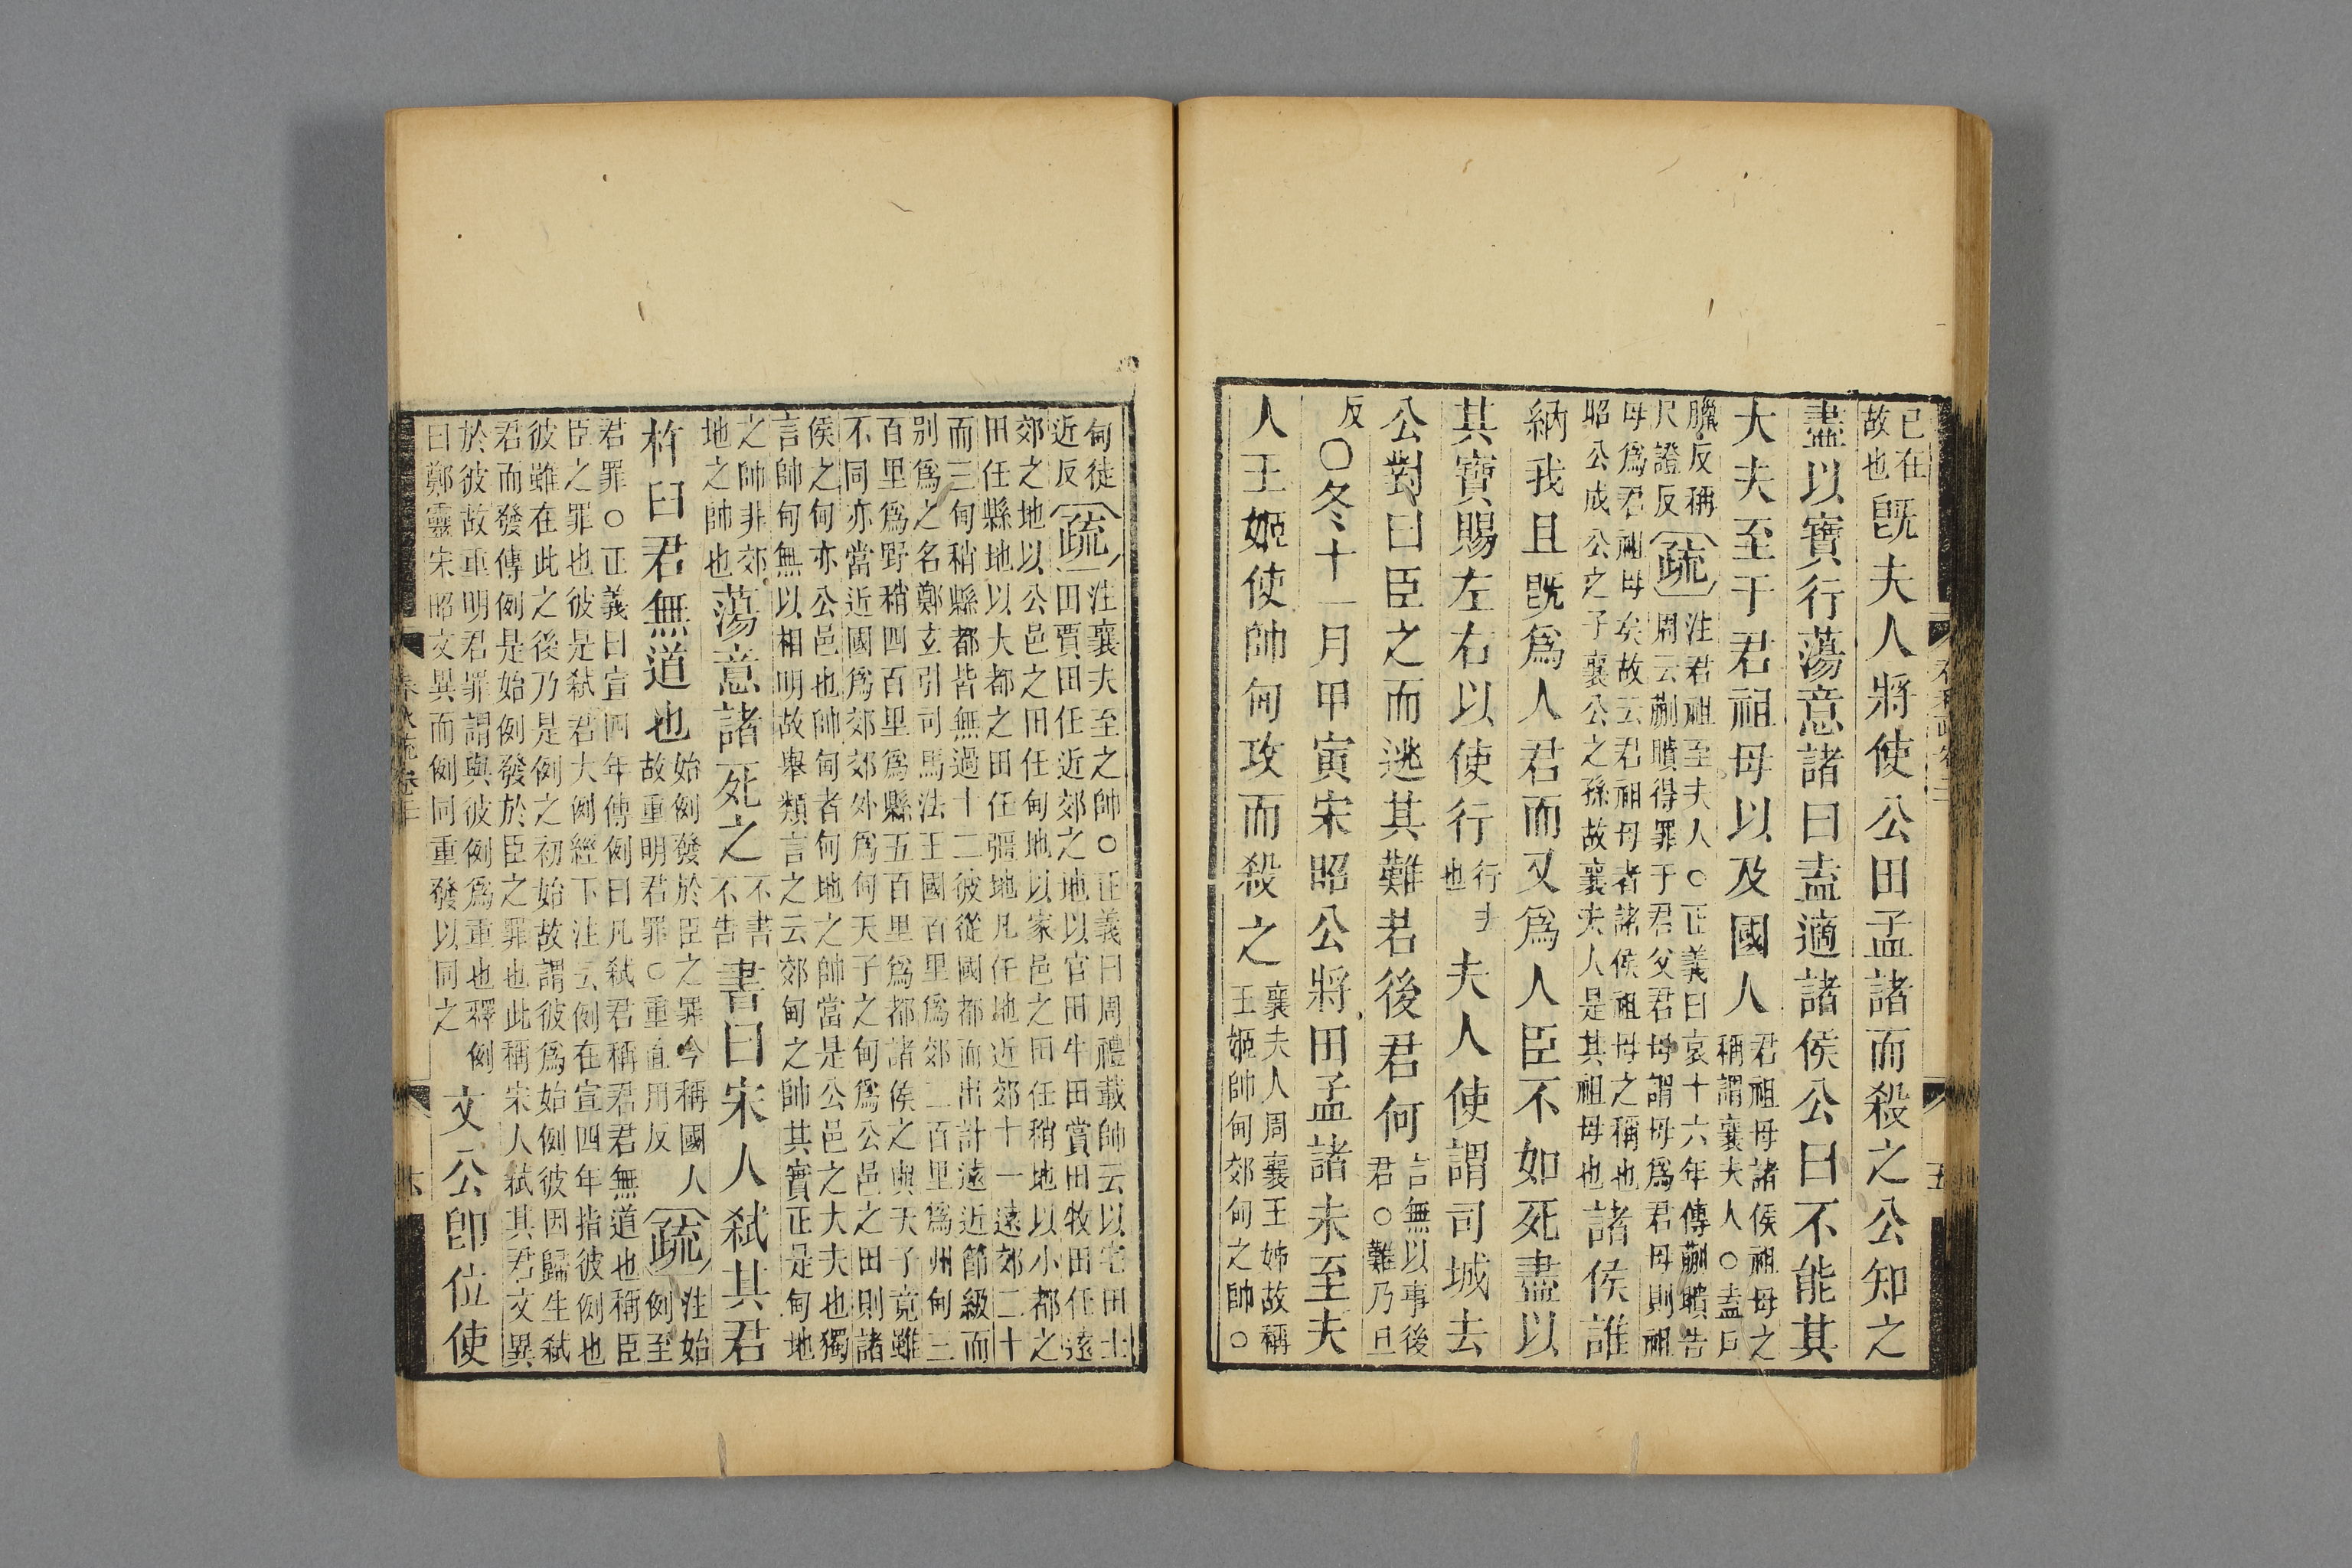 已在
故也
旣夫人將使公田孟諸而殺之公知之
盡以寶行蕩意諸曰盍適諸侯公曰不能其
大夫至于君祖母以及國人
君祖母諸侯祖母之
稱謂襄夫人○盍戶
臘反稱
尺證反
疏
注君祖至夫人○正義曰哀十六年傳蒯聵告
周云蒯聵得罪于君父君母謂母爲君母則祖
母爲君祖母矣故云君祖母者諸侯祖母之稱也
昭公成公之子襄公之孫故襄夫人是其祖母也
諸侯誰
納我且旣爲人君而又爲人臣不如死盡以
其寶賜左右以使行
行去
也
夫人使謂司城去
公對曰臣之而逃其難若後君何
言無以事後
君○難乃旦
反
○冬十一月甲寅宋昭公將田孟諸未至夫
人王姬使帥甸攻而殺之
襄夫人周襄王姊故稱
王姬帥甸郊甸之帥○
甸徒
近反
疏
注襄夫至之帥○正義曰周禮載師云以宅田士
田賈田任近郊之地以官田牛田賞田牧田任遠
郊之地以公邑之田任甸地以家邑之田任稍地以小都之
田任縣地以大都之田任疆地凡任地近郊十一遠郊二十
而三甸稍縣都皆無過十二彼從國都而出計遠近節級而
別爲之名鄭玄引司馬法王國百里爲郊二百里爲州甸三
百里爲野稍四百里爲縣五百里爲都諸侯之與天子竟雖
不同亦當近國爲郊郊外爲甸天子之甸爲公邑之田則諸
侯之甸亦公邑也帥甸者甸地之帥當是公邑之大夫也獨
言帥甸無以相明故舉類言之云郊甸之帥其實正是甸地
之帥非郊
地之帥也
蕩意諸死之
不書
不告
書曰宋人弑其君
杵臼君無道也
始例發於臣之罪今稱國人
故重明君罪○重直用反
疏
注始
例至
君罪○正義曰宣四年傳例曰凡弑君稱君君無道也稱臣
臣之罪也彼是弑君大例經下注云例在宣四年指彼例也
彼雖在此之後乃是例之初始故謂彼爲始例彼因歸生弑
君而發傳例是始例發於臣之罪也此稱宋人弑其君文異
於彼故重明君罪謂與彼例爲重也釋例
曰鄭靈宋昭文異而例同重發以同之
文公卽位使